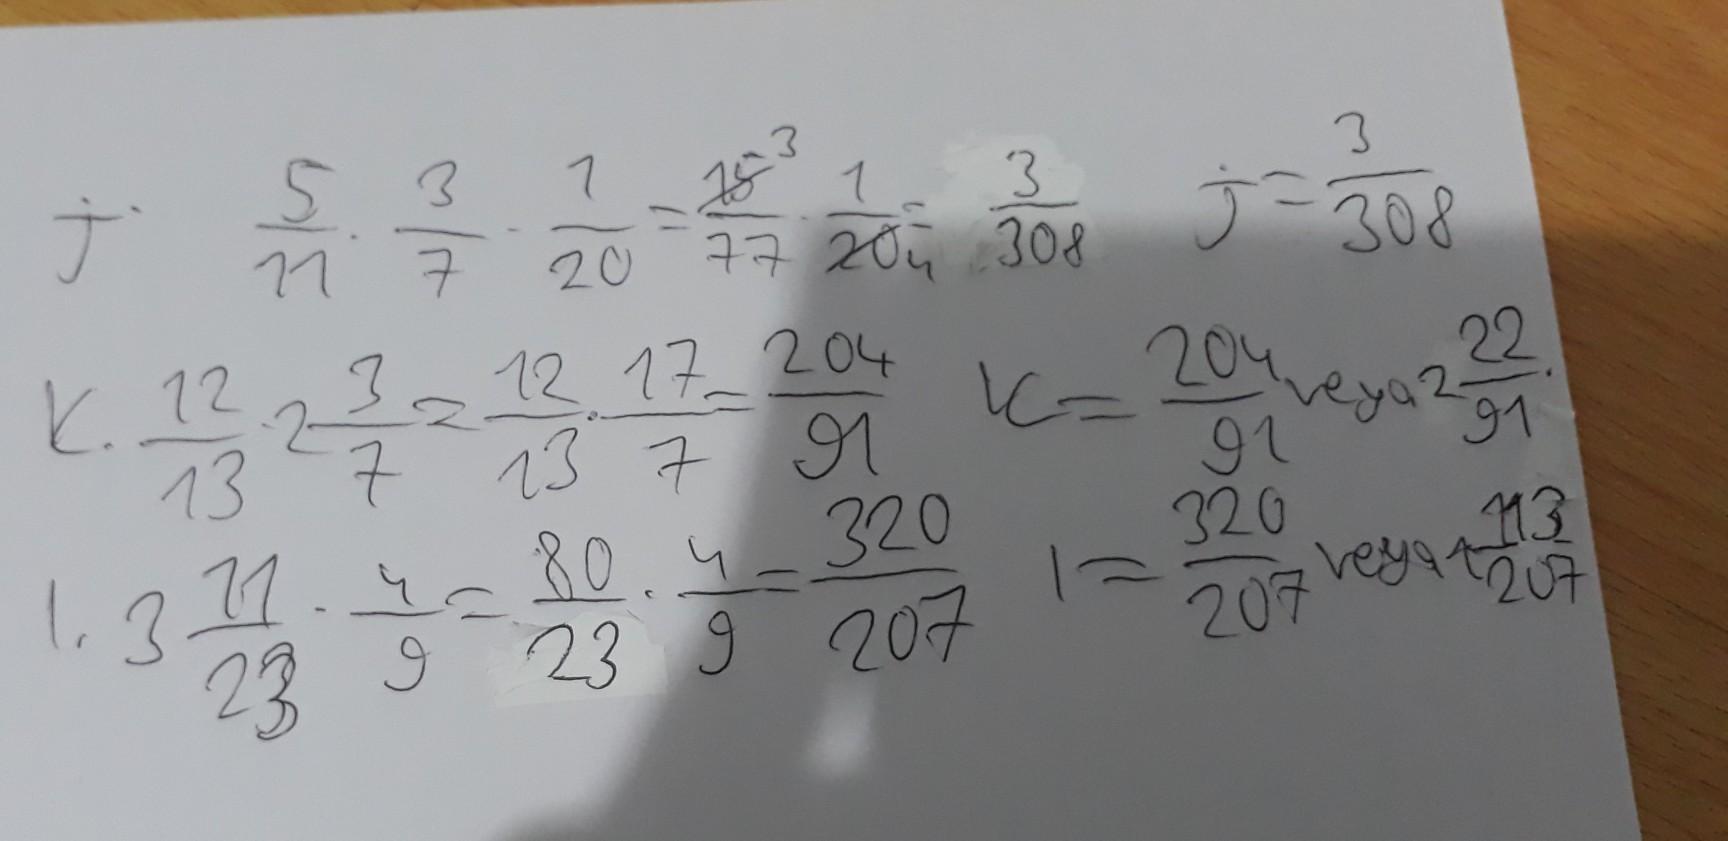 j. 5/11 · 3/7 · 1/20 = 15 3/77 · 1/20 4 = 3/308 j = 3/308
K. 12/13 · 2 3/7 = 12/13 · 17/7 = 204/91 K = 204/91 veya 2 22/91.
l. 3 11/23 · 4/9 = 80/23 · 4/9 = 320/207 l = 320/207 veya 1 113/207